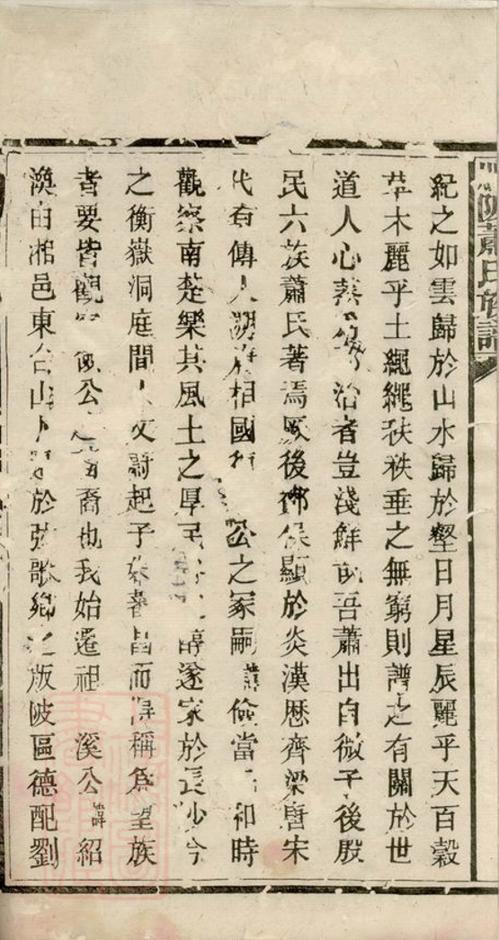 蕭氏族譜
紀之如雲歸於山水歸於壑日月星辰麗乎天百穀
草木麗乎土繩繩秩秩垂之無窮則譜之有關於世
道人心治者豈淺鮮哉吾蕭出自微子後殷
民六族蕭氏著焉厥後酇侯顯於炎漢歷齊梁唐宋
代有傳人相國公之冢嗣諱儉當和時
觀察南楚樂其風土之厚民醇遂家於長沙今
之衡嶽洞庭間人文蔚起子孫蕃昌而得稱為望族
者要皆觀公裔也我始遷祖溪公諱紹
渙由湘邑東台山於弦歌鄉之版陂區德配劉